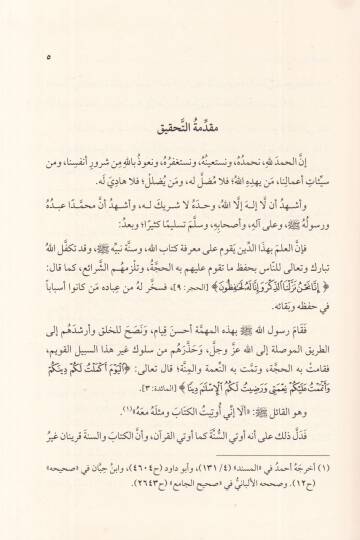 ٥
مقدِّمةُ التَّحقيق
إنَّ الحمدَ للهِ، نحمدُهُ، ونستعينُهُ، ونستغفرُهُ، ونعوذُ باللهِ مِن شرورِ أنفسِنا، ومن
سيِّئاتِ أعمالِنا، مَن يهدِهِ اللهُ؛ فلا مُضلَّ له، ومَن يُضللْ؛ فلا هاديَ لَه.
وأشهدُ أن لَّا إلهَ إلَّا اللهُ، وحدَهُ لا شريكَ لَه، وأشهدُ أنَّ محمَّدًا عبدُهُ
ورسولُهُ ﷺ، وعلى آلِهِ، وأصحابِهِ، وسلَّم تسليمًا كثيرًا؛ وبعدُ:
فإنَّ العلمَ بهذا الدِّين يَقوم على معرفة كتاب الله، وسنَّة نبيِّه ﷺ، وقد تكفَّل اللهُ
تبارك وتعالى للنَّاس بحفظ ما تقوم عليهم به الحجَّةُ، وتلزمهُم الشَّرائع، كما قال:
﴿إِنَّا نَحْنُ نَزَّلْنَا الذِّكْرَ وَإِنَّا لَهُ لَحَافِظُونَ﴾ [الحجر: ٩]، فسخَّر لهُ من عِباده مَن كانوا أسباباً
في حفظه وبَقائه.
فَقَامَ رسول الله ﷺ بهذه المهمَّة أحسنَ قيام، ونَصَحَ للخلق وأرشدَهُم إلى
الطريق الموصلة إلى الله عزَّ وجلَّ، وحَذَّرَهُم من سلوك غير هذا السبيل القويم،
فقامتْ به الحجَّة، وتمَّت به النعمة والمِنَّة؛ قال تعالى: ﴿الْيَوْمَ أَكْمَلْتُ لَكُمْ دِينَكُمْ
وَأَتْمَمْتُ عَلَيْكُمْ نِعْمَتِي وَرَضِيتُ لَكُمُ الْإِسْلَامَ دِينًا﴾ [المائدة: ٣].
وهو القائل ﷺ: «ألا إنِّي أُوتِيتُ الكتابَ ومثلَهُ معَهُ»(١).
فَدَلَّ ذلك على أنه أوتي السُّنَّة كما أوتي القرآن، وأنَّ الكتابَ والسنةَ قرينان غيرُ
(١) أخرجَهُ أحمدُ في «المسند» (٤/ ١٣١)، وأبو داود (ح٤٦٠٤)، وابنُ حِبَّان في «صحيحه»
(ح١٢). وصححه الألبانيُّ في «صحيح الجامع» (ح٢٦٤٣).